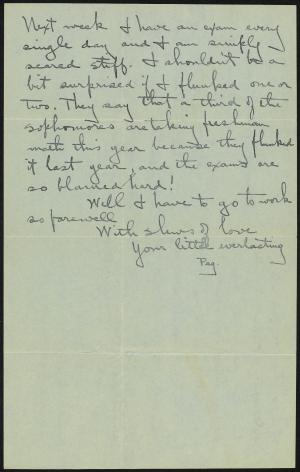 Next week I have an exam every
single day and I am simply
scared stiff. I shouldn't be a
bit surprised if I flunked one or
two. They say that a third of the
sophomores are taking freshman
math this year because they flunked
it last year, and the exams are
so blamed hard!
Well I have to go to work
so farewell
With slews of love
Your little everlasting
Peg.